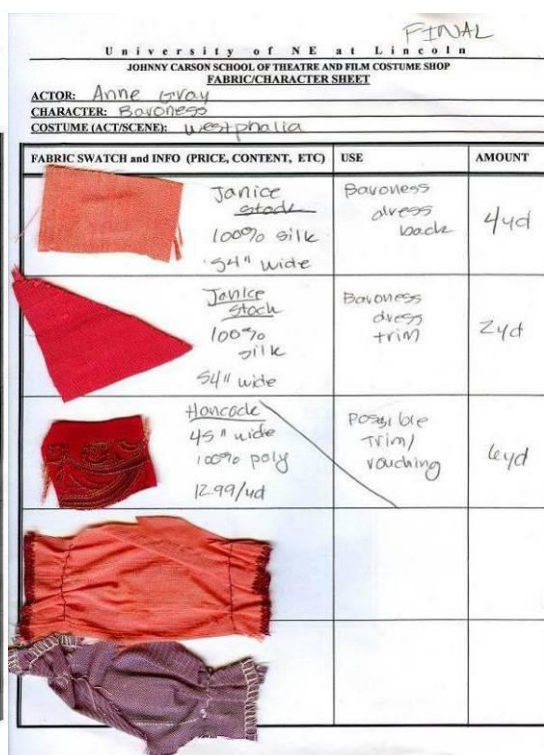 FINAL
University of NE at Lincoln
JOHNNY CARSON SCHOOL OF THEATRE AND FILM COSTUME SHOP
FABRIC/CHARACTER SHEET
ACTOR: Anne Gray
CHARACTER: Baroness
COSTUME (ACT/SCENE): Westphalia
FABRIC SWATCH and INFO (PRICE, CONTENT, ETC) USE AMOUNT
Janice
stock
100% silk
54" wide
Baroness
dress
back
4yd
Janice
stock
100%
silk
54" wide
Baroness
dress
trim
2yd
Hancock
45" wide
100% poly
12.99/yd
Possible
Trim/
rouching
6yd